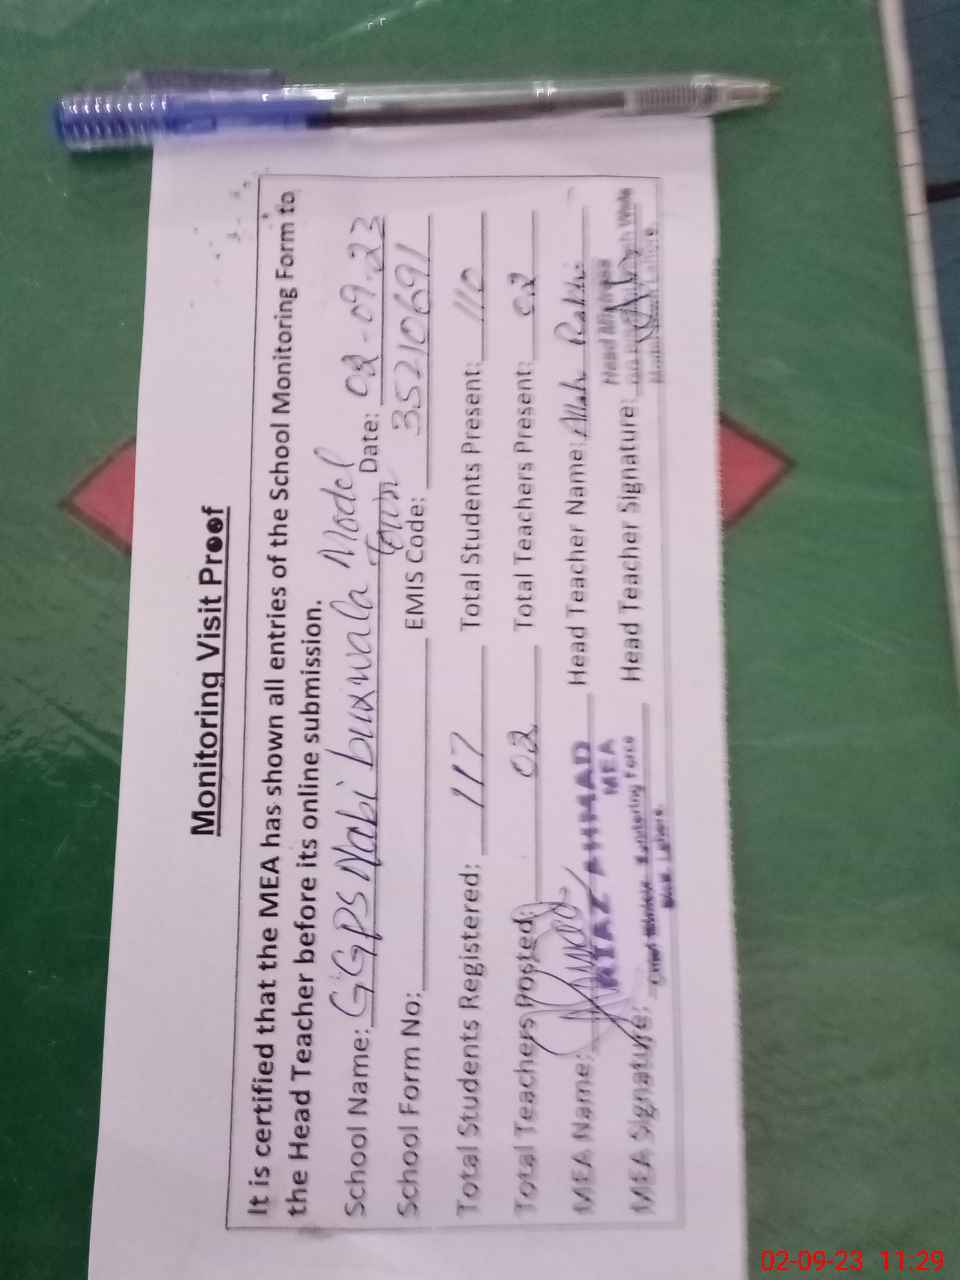 Monitoring Visit Proof
It is certified that the MEA has shown all entries of the School Monitoring Form to
the Head Teacher before its online submission.
School Name: GGPS Nabi buxwala Model Town Date: 02-09-23
School Form No: EMIS Code: 35210691
Total Students Registered: 117 Total Students Present: 110
Total Teachers Posted: 02 Total Teachers Present: 02
MEA Name: Head Teacher Name: Allah Rakhi
AHMAD
MEA
MEA Signature: Head Teacher Signature:
Head Mistress
Monitoring Force
Lahore
02-09-23 11:29